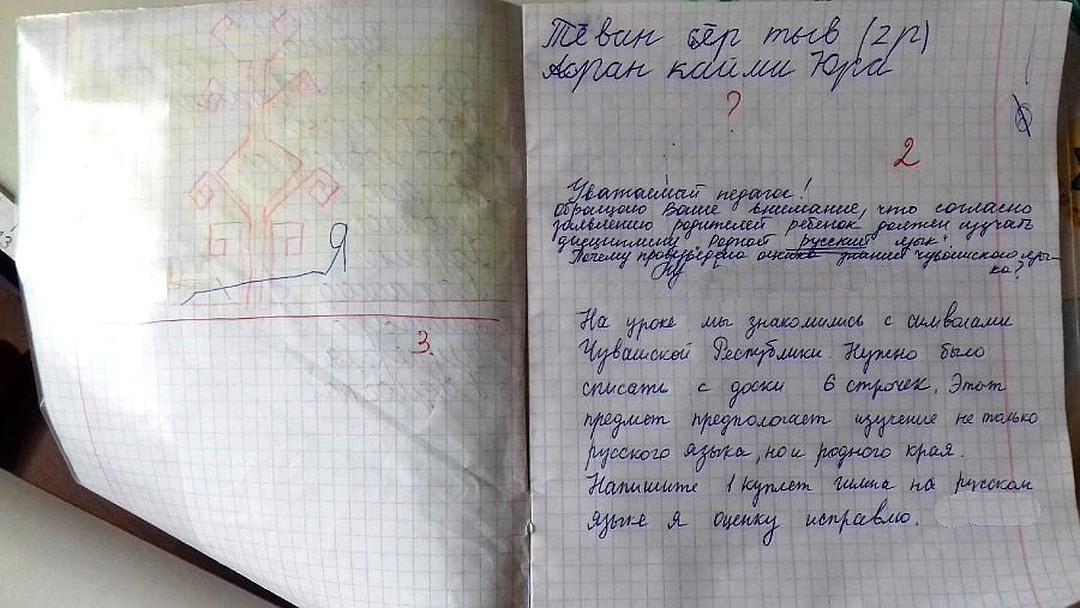 Я
3.
Тӑван ҫӗр тыв (2 р)
Асран кайми Юра
?
2
Уважаемый педагог!
обращаю Ваше внимание, что согласно
заявлению родителей ребенок должен изучать
дисциплину "родной русский язык".
Почему проведена оценка знаний чувашского язы-
ка?
На уроке мы знакомились с символами
Чувашской Республики. Нужно было
списать с доски 6 строчек. Этот
предмет предпологает изучение не только
русского языка, но и родного края.
Напишите 1 куплет гимна на русском
языке я оценку исправлю.